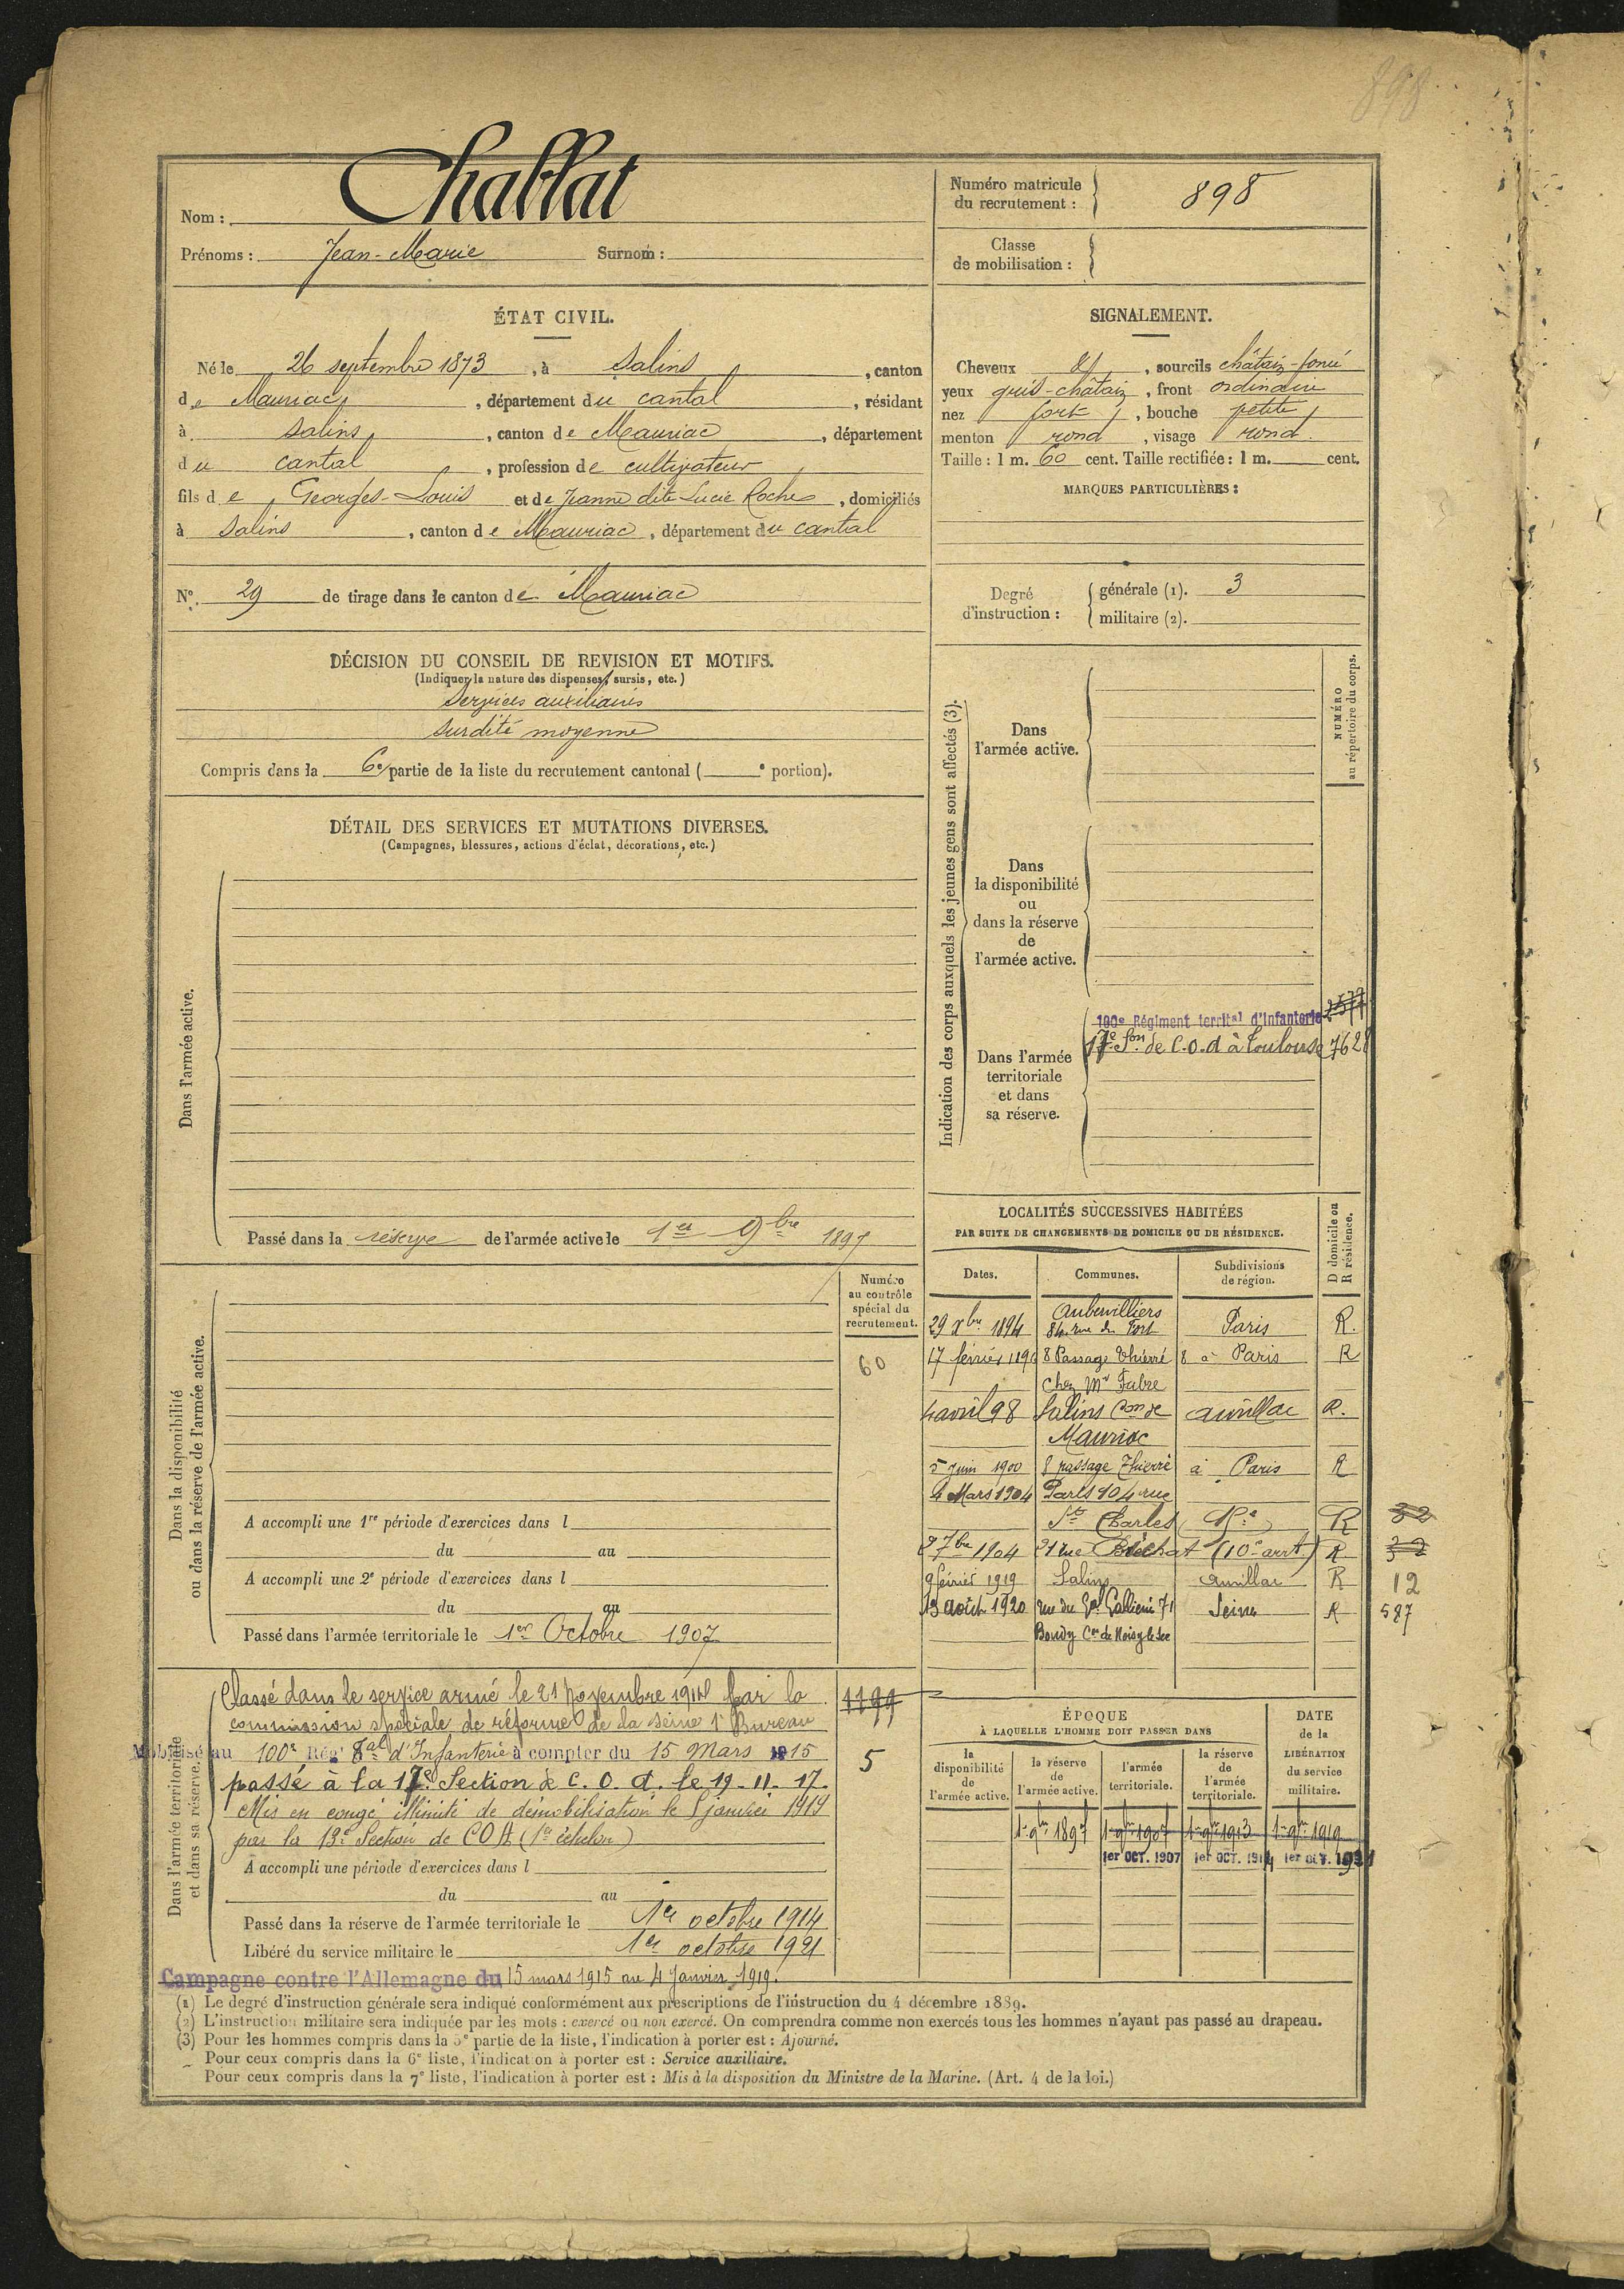 898
Nom : Chablat
Prénoms : Jean-Marie Surnom :
Numéro matricule du recrutement : 898
Classe de mobilisation :
ÉTAT CIVIL.
Né le 26 septembre 1873, à Salins, canton
de Mauriac, département du cantal, résidant
à Salins, canton de Mauriac, département
du cantal, profession de cultivateur
fils de Georges-Louis et de Jeanne dite Lucie Roche, domiciliés
à Salins, canton de Mauriac, département du cantal
N° 29 de tirage dans le canton de Mauriac
SIGNALEMENT.
Cheveux et, sourcils châtain-foncé
yeux gris-châtain, front ordinaire
nez fort, bouche petite
menton rond, visage rond.
Taille : 1 m. 60 cent. Taille rectifiée : 1 m. cent.
MARQUES PARTICULIÈRES :
Degré d'instruction :
générale (1). 3
militaire (2).
DÉCISION DU CONSEIL DE REVISION ET MOTIFS.
(Indiquer la nature des dispenses, sursis, etc.)
Services auxiliaires
surdité moyenne
Compris dans la 6e partie de la liste du recrutement cantonal ( e portion).
DÉTAIL DES SERVICES ET MUTATIONS DIVERSES.
(Campagnes, blessures, actions d'éclat, décorations, etc.)
Dans l'armée active.
Passé dans la réserve de l'armée active le 1er 9bre 1897
Indication des corps auxquels les jeunes gens sont affectés (3).
NUMÉRO au répertoire du corps.
Dans l'armée active.
Dans la disponibilité ou dans la réserve de l'armée active.
Dans l'armée territoriale et dans sa réserve.
100e Régiment territal d'Infanterie 2577
17e Son de C.O.A à Toulouse 7628
Dans la disponibilité ou dans la réserve de l'armée active.
Numéro au contrôle spécial du recrutement.
60
A accompli une 1re période d'exercices dans l
du au
A accompli une 2e période d'exercices dans l
du au
Passé dans l'armée territoriale le 1er Octobre 1907
LOCALITÉS SUCCESSIVES HABITÉES
PAR SUITE DE CHANGEMENTS DE DOMICILE OU DE RÉSIDENCE.
Dates. Communes. Subdivisions de région. D domicile ou R résidence.
29 Xbre 1894 Aubervilliers Paris R.
84 rue du Fort
17 février 1896 8 Passage Thierré 8 à Paris R
Chez Mr Fabre
4 avril 98 Salins Con de Aurillac R.
Mauriac
5 juin 1900 8 passage Thierré à Paris R
4 Mars 1904 Paris 104 rue
St Charles R 32
7bre 1904 21 rue Bichat (10e arrt) R 32
9 février 1919 Salins Aurillac R 12
13 août 1920 rue du Gal Gallieni 71 Seine R 587
Bondy Con de Noisy le Sec
Dans l'armée territoriale et dans sa réserve.
Classé dans le service armé le 21 novembre 1914 par la 1199
commission spéciale de réforme de la Seine 1r Bureau
Mobilisé au 100e Régt Tal d'Infanterie à compter du 15 Mars 1915 5
passé à la 17e Section de C. O. A. le 19-11-17.
Mis en congé illimité de démobilisation le 5 janvier 1919
par la 13e Section de COA (1er échelon)
A accompli une période d'exercices dans l
du au
Passé dans la réserve de l'armée territoriale le 1er octobre 1914
Libéré du service militaire le 1er octobre 1921
Campagne contre l'Allemagne du 15 mars 1915 au 4 Janvier 1919.
ÉPOQUE
À LAQUELLE L'HOMME DOIT PASSER DANS
DATE de la LIBÉRATION du service militaire.
la disponibilité de l'armée active.
la réserve de l'armée active.
l'armée territoriale.
la réserve de l'armée territoriale.
1er 9bre 1897 1er 9bre 1907 1er 9bre 1913 1er 9bre 1919
1er OCT. 1907 1er OCT. 1914 1er OCT. 1921
(1) Le degré d'instruction générale sera indiqué conformément aux prescriptions de l'instruction du 4 décembre 1889.
(2) L'instruction militaire sera indiquée par les mots : exercé ou non exercé. On comprendra comme non exercés tous les hommes n'ayant pas passé au drapeau.
(3) Pour les hommes compris dans la 5e partie de la liste, l'indication à porter est : Ajourné.
Pour ceux compris dans la 6e liste, l'indication à porter est : Service auxiliaire.
Pour ceux compris dans la 7e liste, l'indication à porter est : Mis à la disposition du Ministre de la Marine. (Art. 4 de la loi.)